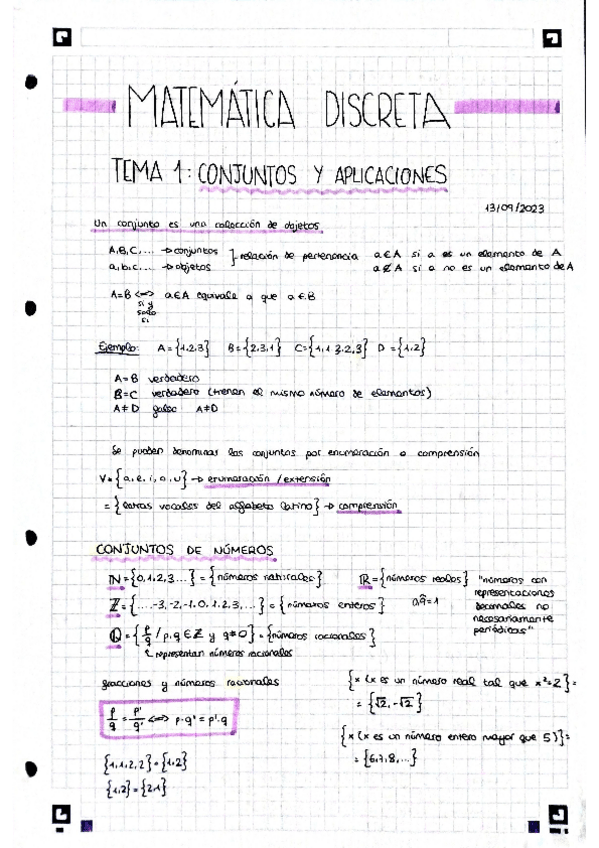 MATEMÁTICA DISCRETA
TEMA 1: CONJUNTOS Y APLICACIONES
13/09/2023
Un conjunto es una colección de objetos
A,B,C,... → conjuntos
a,b,c,... → objetos
} relación de pertenencia
a∈A si a es un elemento de A
a∉A si a no es un elemento de A
A=B <=> a∈A equivale a que a∈B
si y
solo
si
Ejemplo: A={1,2,3} B={2,3,1} C={1,1,3,2,3} D={1,2}
A=B verdadero
B=C verdadero (tienen el mismo número de elementos)
A≠D falso A≠D
Se pueden denominar los conjuntos por enumeración o comprensión
V={a,e,i,o,u} → enumeración/extensión
={letras vocales del alfabeto latino} → comprensión
CONJUNTOS DE NÚMEROS
ℕ={0,1,2,3...}={números naturales}
ℤ={...,-3,-2,-1,0,1,2,3,...}={números enteros}
ℚ={p/q / p,q∈ℤ y q≠0}={números racionales}
representan números racionales
ℝ={números reales}
0,9̂=1
"números con
representaciones
decimales no
necesariamente
periódicas"
fracciones y números racionales
p/q = p'/q' <=> p·q'=p'·q
{1,1,2,2}={1,2}
{1,2}={2,1}
{x (x es un número real tal que x²=2}=
={√2,-√2}
{x (x es un número entero mayor que 5)}=
={6,7,8,...}